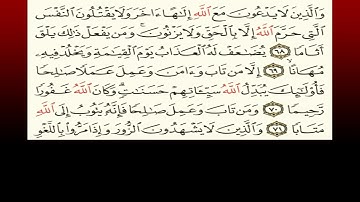 وَٱلَّذِينَ لَا يَدْعُونَ مَعَ ٱللَّهِ إِلَٰهًا ءَاخَرَ وَلَا يَقْتُلُونَ ٱلنَّفْسَ
ٱلَّتِي حَرَّمَ ٱللَّهُ إِلَّا بِٱلْحَقِّ وَلَا يَزْنُونَ ۚ وَمَن يَفْعَلْ ذَٰلِكَ يَلْقَ
أَثَامًا ٦٨ يُضَٰعَفْ لَهُ ٱلْعَذَابُ يَوْمَ ٱلْقِيَٰمَةِ وَيَخْلُدْ فِيهِۦ
مُهَانًا ٦٩ إِلَّا مَن تَابَ وَءَامَنَ وَعَمِلَ عَمَلًا صَٰلِحًا
فَأُو۟لَٰٓئِكَ يُبَدِّلُ ٱللَّهُ سَيِّـَٔاتِهِمْ حَسَنَٰتٍ ۗ وَكَانَ ٱللَّهُ غَفُورًا
رَّحِيمًا ٧٠ وَمَن تَابَ وَعَمِلَ صَٰلِحًا فَإِنَّهُۥ يَتُوبُ إِلَى ٱللَّهِ
مَتَابًا ٧١ وَٱلَّذِينَ لَا يَشْهَدُونَ ٱلزُّورَ وَإِذَا مَرُّوا۟ بِٱللَّغْوِ